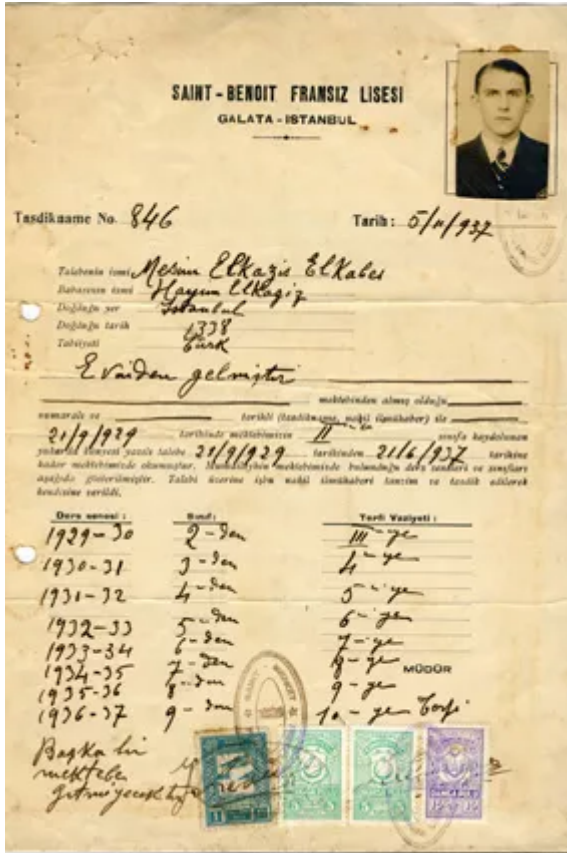 SAINT-BENOIT FRANSIZ LISESI
GALATA-ISTANBUL
Tasdikname No. 846 Tarih: 5/11/937
Talebenin ismi Elkaziz Elkabes
Babasının ismi Hayum Elkagiz
Doğduğu yer Istanbul
Doğduğu tarih 1338
Tabiiyeti Türk
Evinden gelmiştir
mektebinden almış olduğu
numaralı ve tarihli (tasdikname, nakil ilmühaber) ile
21/9/929 tarihinde mektebimizin II sınıfa kaydolunan
yukarda künyesi yazılı talebe 21/9/929 tarihinden 21/6/937 tarihine
kadar mektebimizde okumuştur. mektebimizde bulunduğu ders seneleri ve sınıfları
aşağıda gösterilmiştir. Talebi üzerine işbu nakil ilmühaberi tanzim ve tasdik edilerek
kendisine verildi.
Ders senesi: Sınıf: Terfi Vaziyeti:
1929-30 2-den III-ye
1930-31 3-den 4-ye
1931-32 4-den 5-ye
1932-33 5-den 6-ye
1933-34 6-den 7-ye
1934-35 7-den 8-ye
MÜDÜR
1935-36 8-den 9-ye
1936-37 9-den 10-ye terfi
Başka bir
mektebe
gitmiyecektir